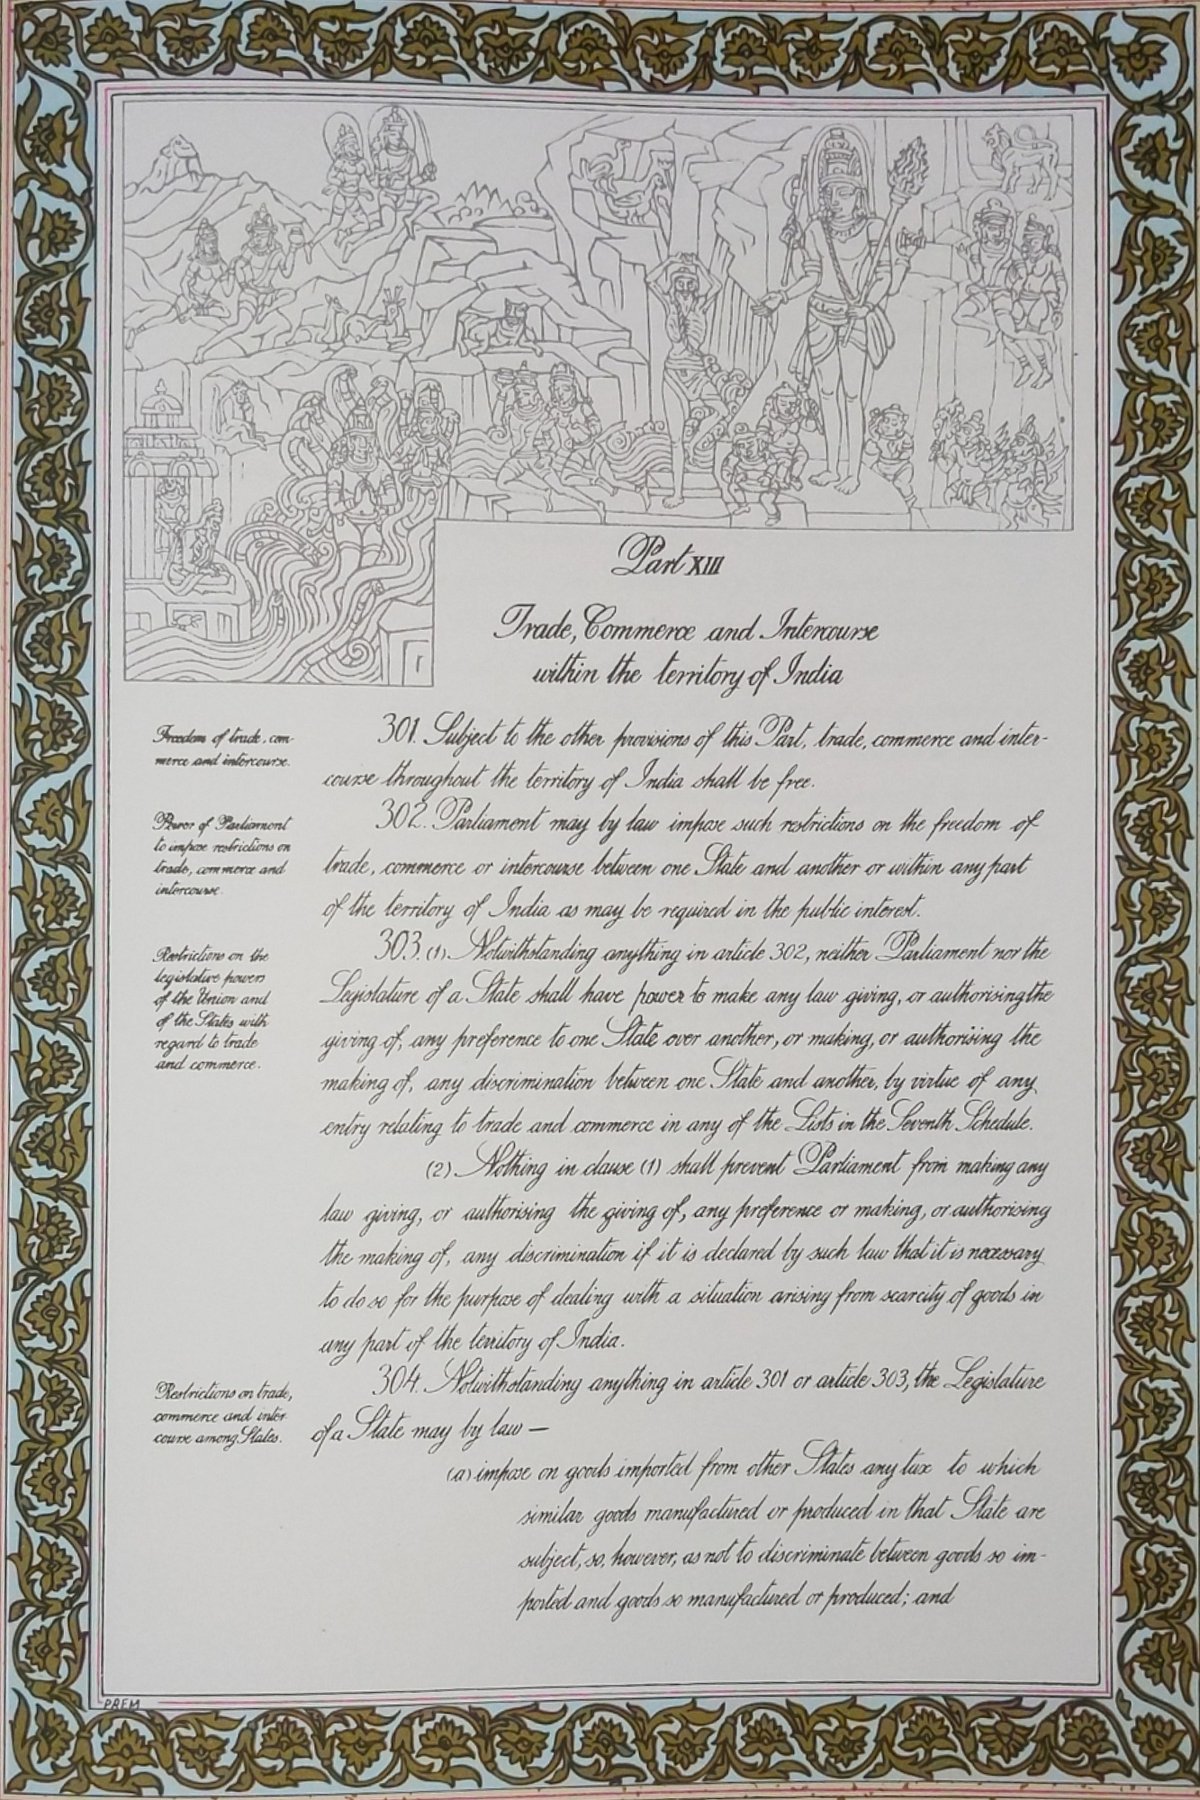 Part XIII
Trade, Commerce and Intercourse
within the territory of India
Freedom of trade, com-
merce and intercourse.
301. Subject to the other provisions of this Part, trade, commerce and inter-
course throughout the territory of India shall be free.
Power of Parliament
to impose restrictions on
trade, commerce and
intercourse.
302. Parliament may by law impose such restrictions on the freedom of
trade, commerce or intercourse between one State and another or within any part
of the territory of India as may be required in the public interest.
Restrictions on the
legislative powers
of the Union and
of the States with
regard to trade
and commerce.
303. (1) Notwithstanding anything in article 302, neither Parliament nor the
Legislature of a State shall have power to make any law giving, or authorising the
giving of, any preference to one State over another, or making, or authorising the
making of, any discrimination between one State and another, by virtue of any
entry relating to trade and commerce in any of the Lists in the Seventh Schedule.
(2) Nothing in clause (1) shall prevent Parliament from making any
law giving, or authorising the giving of, any preference or making, or authorising
the making of, any discrimination if it is declared by such law that it is necessary
to do so for the purpose of dealing with a situation arising from scarcity of goods in
any part of the territory of India.
Restrictions on trade,
commerce and inter
course among States.
304. Notwithstanding anything in article 301 or article 303, the Legislature
of a State may by law —
(a) impose on goods imported from other States any tax to which
similar goods manufactured or produced in that State are
subject, so, however, as not to discriminate between goods so im-
ported and goods so manufactured or produced; and
PREM